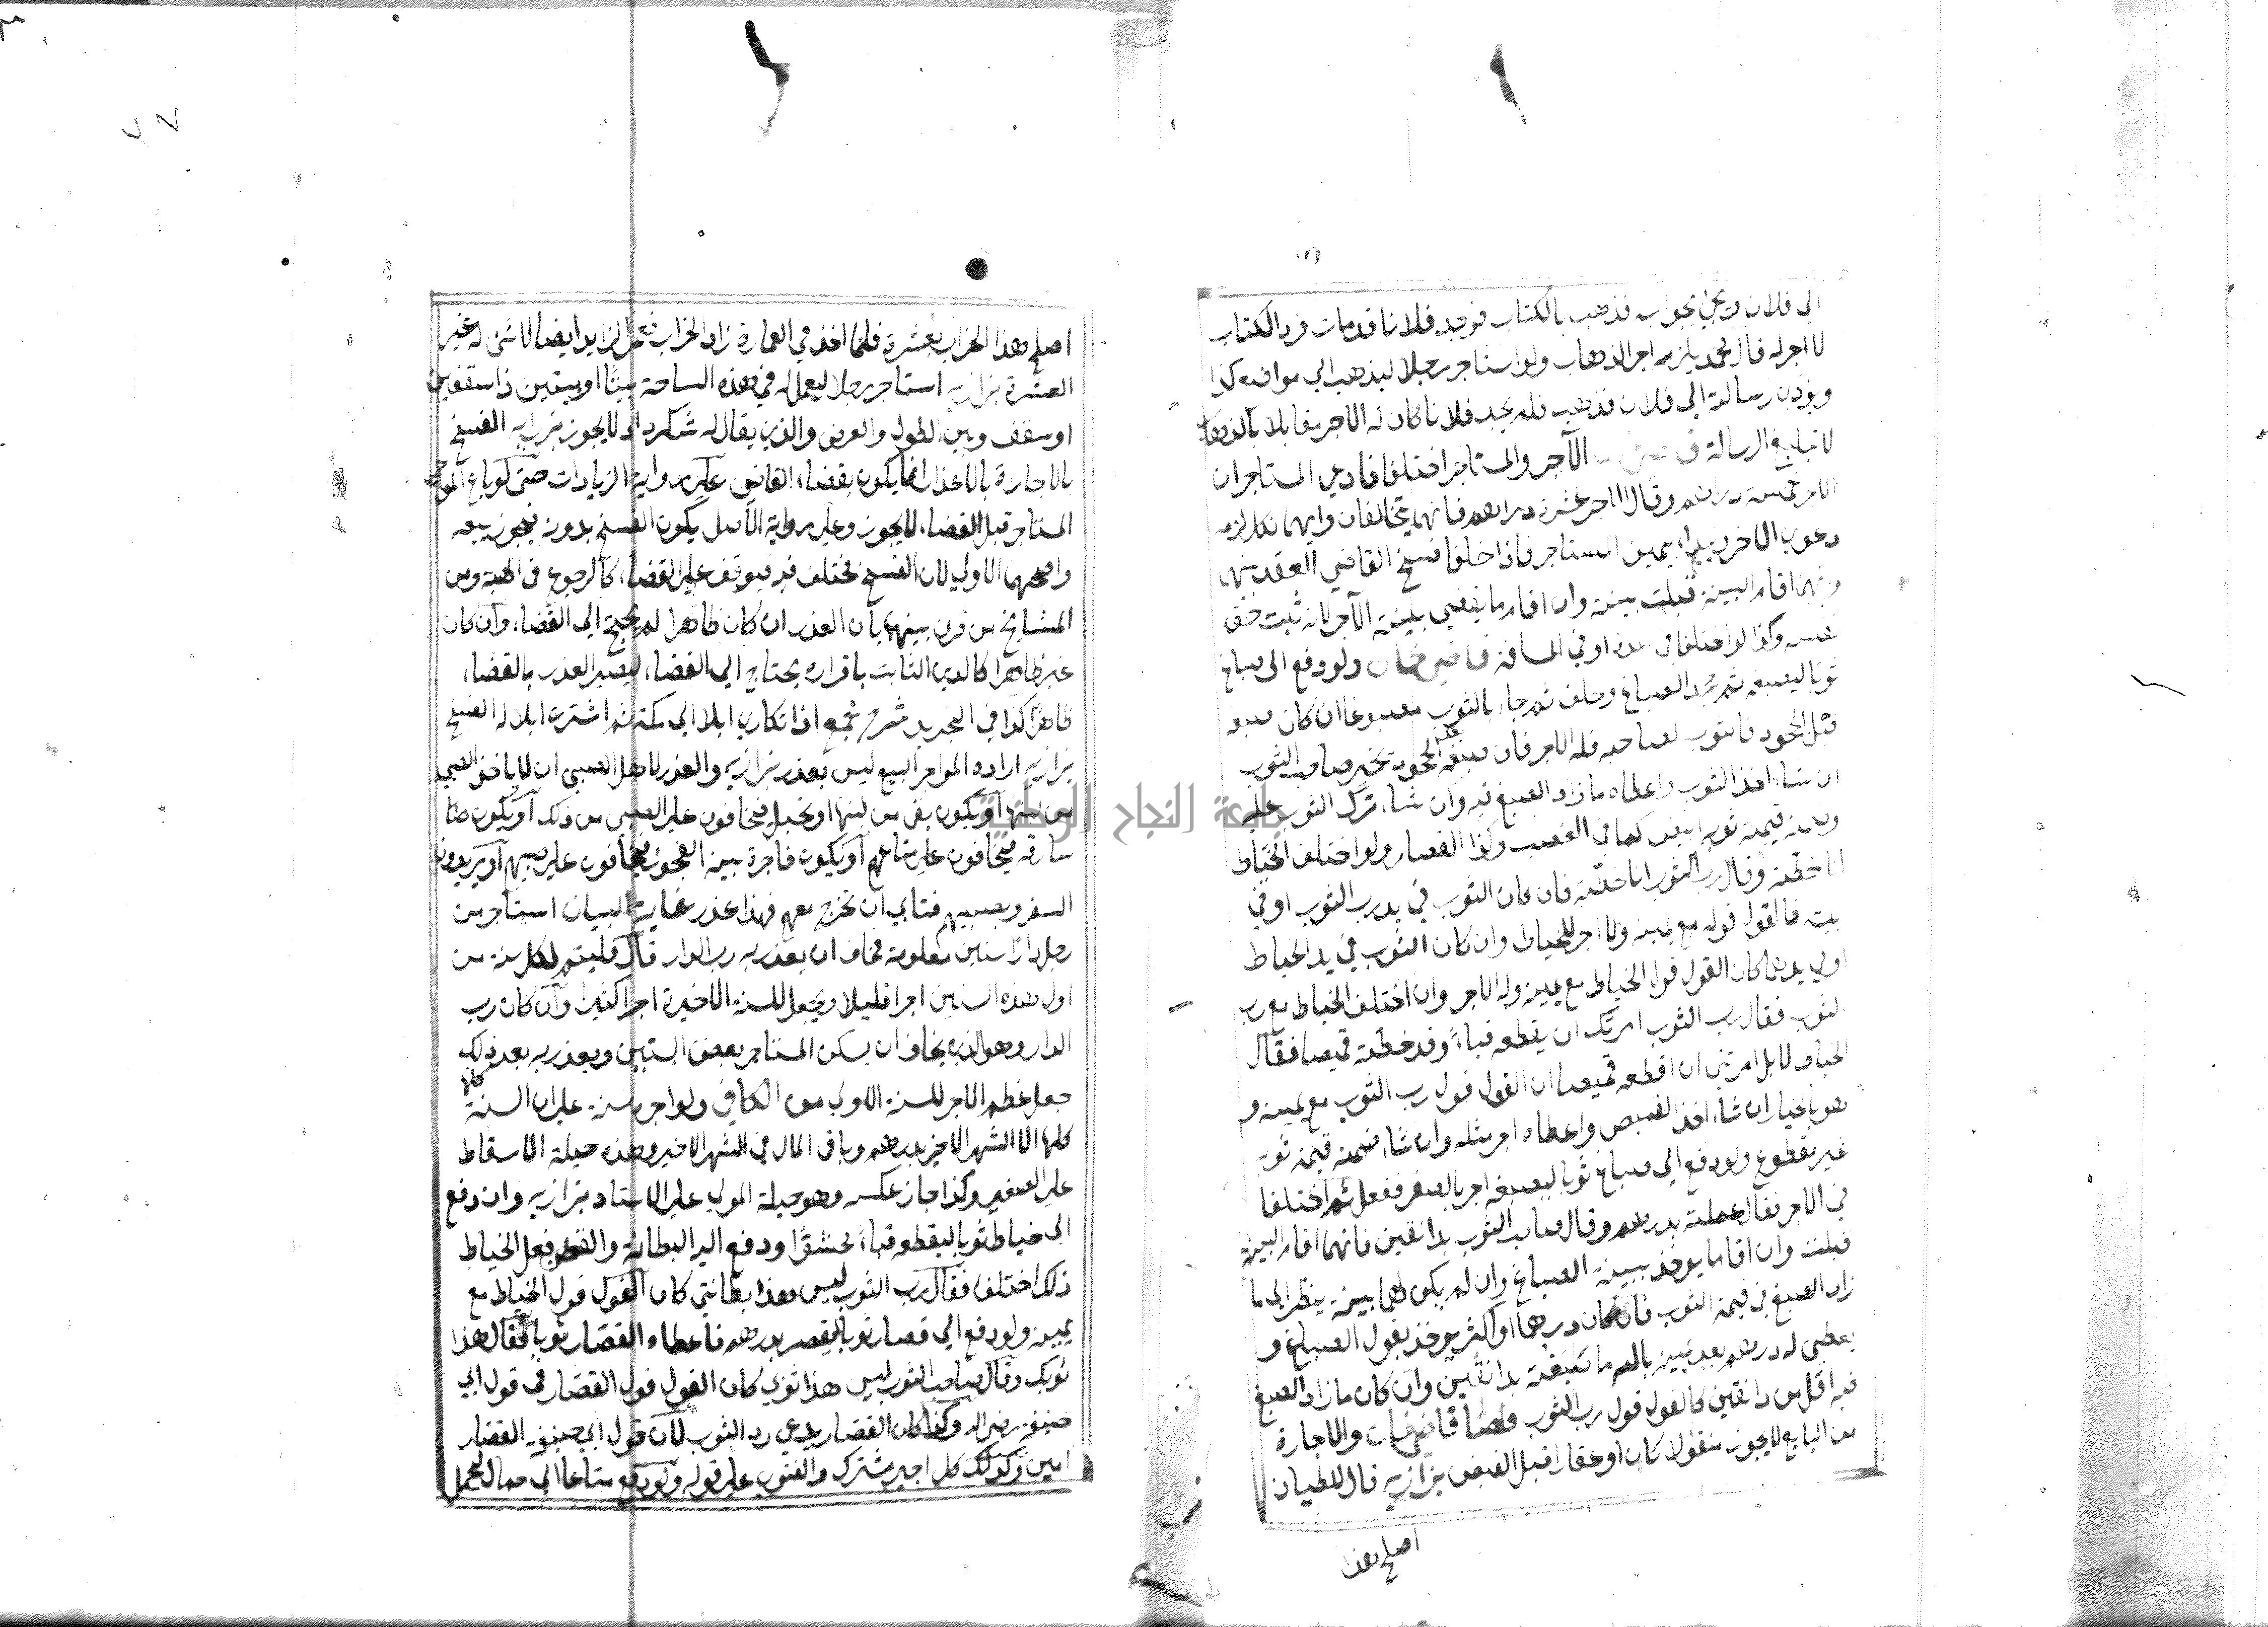 الى فلان ويجئ بجوابه فذهب بالكتاب فوجد فلانا قد مات فرد الكتاب
لا اجر له قال محمد يلزمه اجر الذهاب ولو استاجر رجلا ليذهب الى موافيه كذا
ويؤدي رسالته الى فلان فذهب فلم يجد فلانا كان له الاجر مقابلا بالذهاب
لا تبليغ الرسالة الآجر والمستاجر اختلفا فادعى المستاجر ان
الاجر خمسة دراهم وقال الاجر عشرة دراهم فانهما يتحالفان وايهما نكل لزمه
دعوى الاخر ويبدا بيمين المستاجر فاذا حلفا فسخ القاضي العقد بينهما
وايهما اقام البينة قبلت بينته وان اقاما يقضى ببينة الآجر لانه ثبت حق
نفسه وكذا لو اختلفا في المدة او في المسافة قاضي خان ولو دفع الى صباغ
ثوبا ليصبغه ثم جحد الصباغ وحلف ثم جاء بالثوب مصبوغا ان كان صبغه
قبل الجحود فالثوب لصاحبه فله الاجر فان صبغه بعد الجحود تخير صاحب الثوب
ان شاء اخذ الثوب واعطاه ما زاد الصبغ فيه وان شاء ترك الثوب عليه
وضمنه قيمة ثوبه ابيض كما في الغصب وكذا القصار ولو اختلف الخياط
انا خطته وقال رب الثوب انا خطته فان كان الثوب في يد رب الثوب او في
بيته فالقول قوله مع يمينه ولا اجر للخياط وان كان الثوب في يد الخياط
او في يدهما كان القول قول الخياط مع يمينه وله الاجر وان اختلف الخياط مع رب
الثوب فقال رب الثوب امرتك ان يقطعه قباء وقد خطته قميصا فقال
الخياط لا بل امرتني ان اقطعه قميصا ان القول قول رب الثوب مع يمينه و
هو بالخيار ان شاء اخذ القميص واعطاه اجر مثله وان شاء ضمنه قيمة ثوبه
غير مقطوع ولو دفع الى صباغ ثوبا ليصبغه اجر بالصفر ففعل ثم اختلفا
في الاجر فقال عملته بدرهم وقال صاحب الثوب بدانقين فانهما اقام البينة
قبلت وان اقاما يوخذ ببينة الصباغ وان لم يكن لهما بينة ينظر الى ما
زاد الصبغ في قيمة الثوب فان كان درهما او اكثر يوخذ بقول الصباغ و
يعطى له درهم بعد يمينه بالله ما صبغته بدانقين وان كان ما زاد الصبغ
فيه اقل من دانقين كالقول قول رب الثوب قاضي خان والاجارة
من البايع لا يجوز منقولا كان او عقارا قبل القبض بزازيه قال للطيان
اصلح هذا
اصلح هذا الخراب بعشرة فلما اخذ في العمارة زاد الخراب فعمل الزايد ايضا لا شئ له غير
العشرة بزازيه استاجر رجلا ليعمل له في هذه الساحة بيتا او بيتين ذا سقفين
او سقف وبين الطول والعرض والذي يقال له شكرداد لا يجوز بزازيه الفسخ
بالاجارة بالاعذار انما يكون بقضاء القاضي على رواية الزيادات حتى لو باع المواجر
المستاجر قبل القضاء لا يجوز وعلى رواية الاصل يكون الفسخ بدونه فيجوز بيعه
واصحهما الاولى لان الفسخ مختلف فيه فيتوقف على القضاء كالرجوع في الهبة ومن
المشايخ من فرق بينهما بان العذر ان كان ظاهرا لم يحتج الى القضاء وان كان
غير ظاهرا كالدين الثابت باقراره يحتاج الى القضاء ليصير العذر بالقضاء
ظاهرا كذا في التجريد شرح مجمع اذا تكارى ابلا الى مكة ثم اشترى ابلا له الفسخ
بزازيه اراده المواجر البيع ليس بعذر بزازيه والعذر لاهل الصبي ان لا ياخذ الصبي
من لبنها او يكون بقى من لبنها او تحبل فيخافون على الصبي من ذلك او يكون
سارقه فيخافون على متاعهم او يكون فاجرة بينة الفجور فيخافون على صبيهم او يريدون
السفر وبصبيهم فتابى ان تخرج معهم فهذا عذر غاية البيان استاجر من
رجل دارا سنين معلومة فخاف ان يعذر به رب الدار قال فليتم لكل سنة من
اول هذه السنين اجرا قليلا ويجعل للسنة الاخيرة اجرا كثيرا وان كان رب
الدار وهو الذي يخاف ان يسكن المستاجر بعض السنين ويعذر به بعد ذلك
جعل عظم الاجر للسنة الاولى من الكافي ولو اجر سنة على ان السنة كلها
كلها الا الشهر الاخير بدرهم وباقي المال في الشهر الاخير وهذه حيلة الاسقاط
على الصغير وكذا جاز عكسه وهو حيلة المولى على الاستاد بزازيه وان دفع
الى خياط ثوبا ليقطعه قباء محشوا ودفع اليه البطانة والقطن ففعل الخياط
ذلك اختلفا فقال رب الثوب ليس هذا بطانتي كان القول قول الخياط مع
يمينه ولو دفع الى قصار ثوبا ليقصر بدرهم فاعطاه القصار ثوبا فقال هذا
ثوبك وقال صاحب الثوب ليس هذا ثوبي كان القول قول القصار في قول ابي
حنيفة رضي الله وكذا كان القصار يدعي رد الثوب لان قول ابي حنيفة القصار
امين وكذلك كل اجير مشترك والفتوى على قوله ولو دفع متاعا الى حمال ليحمل
جامعة النجاح الوطنية